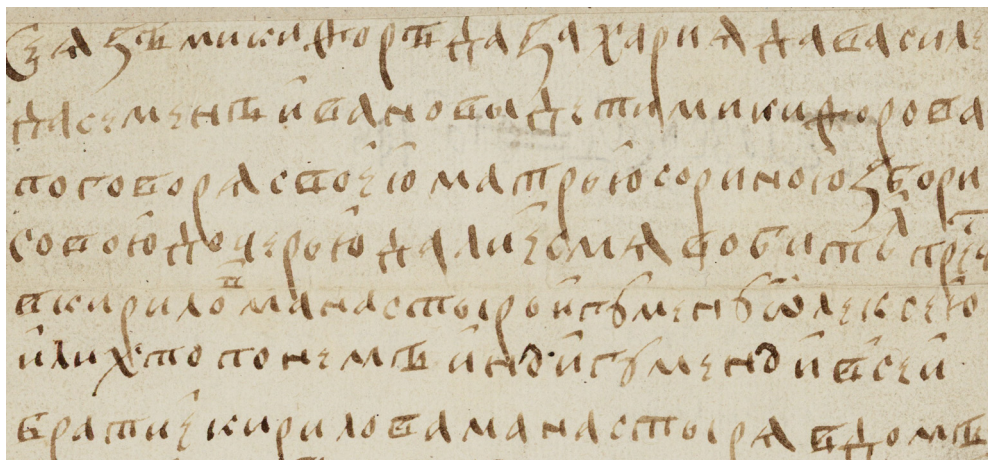 Се яз Микифоръ да Захария да Василе
да Семенъ Ивановы дети Микифорова
поговоря с своею матрью с Ориною з Бори
совою дочерью дали есмя в обитѣль пречс
в Кирило в манастырь игумену Олексею
или хто по нем ин игумен и всеи
братие Кирилова манастыря в дом